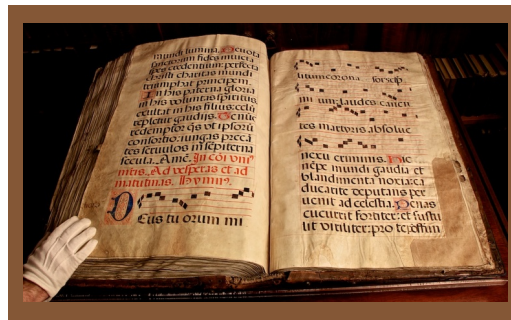 mundi lumina, Devota
sanctorum fides invicta
spes credentium: perfecta
christi charitas mundi
triumphat principem.
In his paterna gloria
in his voluntas spiritus,
exultat in his filius: celū
repletur gaudijs. Te nūc
redemptor q̄s ut ipsorū
consortio: iungas precā
tes servulos in sēpiterna
secula. Amē. In cōi vniꝰ
mr̄is. Ad vesperas et ad
matutinas. Hymnꝰ.
Deus tu orum mi
litum corona sors et p̄
mi um: laudes canen
tes martyris absolve
nexu criminis. Hic
nēpe mundi gaudia et
blandimenta noxia: ca
duca rite deputans per
venit ad celestia. Penas
cucurrit fortiter: et sustu
lit viriliter: pro te